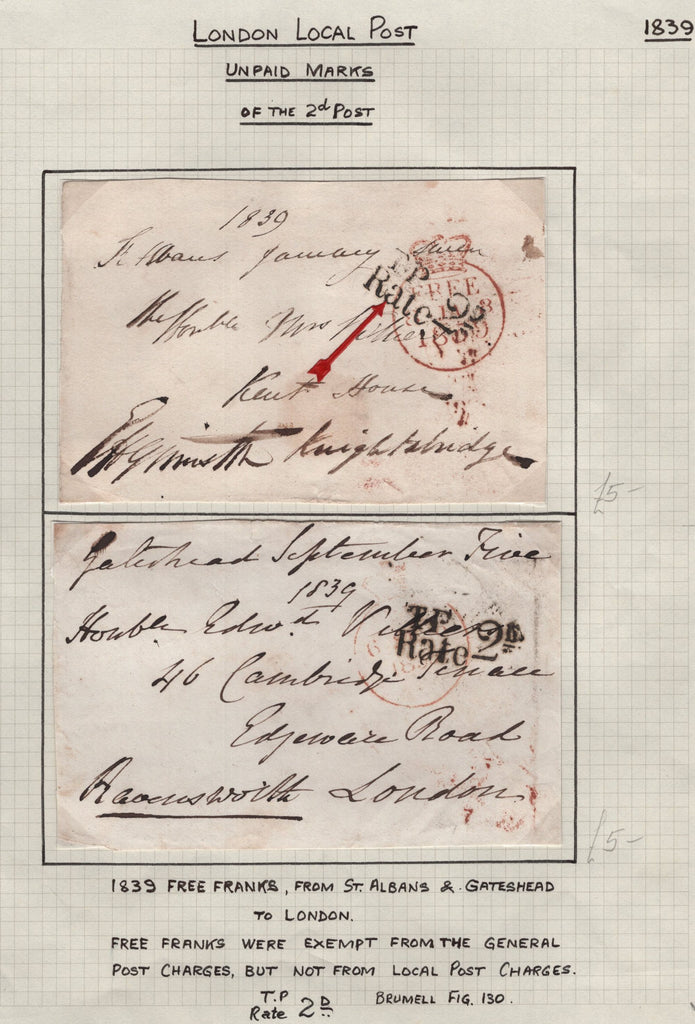 LONDON LOCAL POST
1839
UNPAID MARKS
OF THE 2d POST
1839
St Albans January Seven
T.P
Rate 2D
FREE
1839
The Honble Mrs Villiers
Kent House
Knightsbridge
£5-
Gateshead September Five
1839
Honble Edwd. Villiers
T.P
Rate 2D
46 Cambridge Terrace
Edgeware Road
Ravensworth London
7
£5-
1839 FREE FRANKS, FROM ST. ALBANS & GATESHEAD
TO LONDON.
FREE FRANKS WERE EXEMPT FROM THE GENERAL
POST CHARGES, BUT NOT FROM LOCAL POST CHARGES.
T.P
Rate 2D BRUMELL FIG. 130.